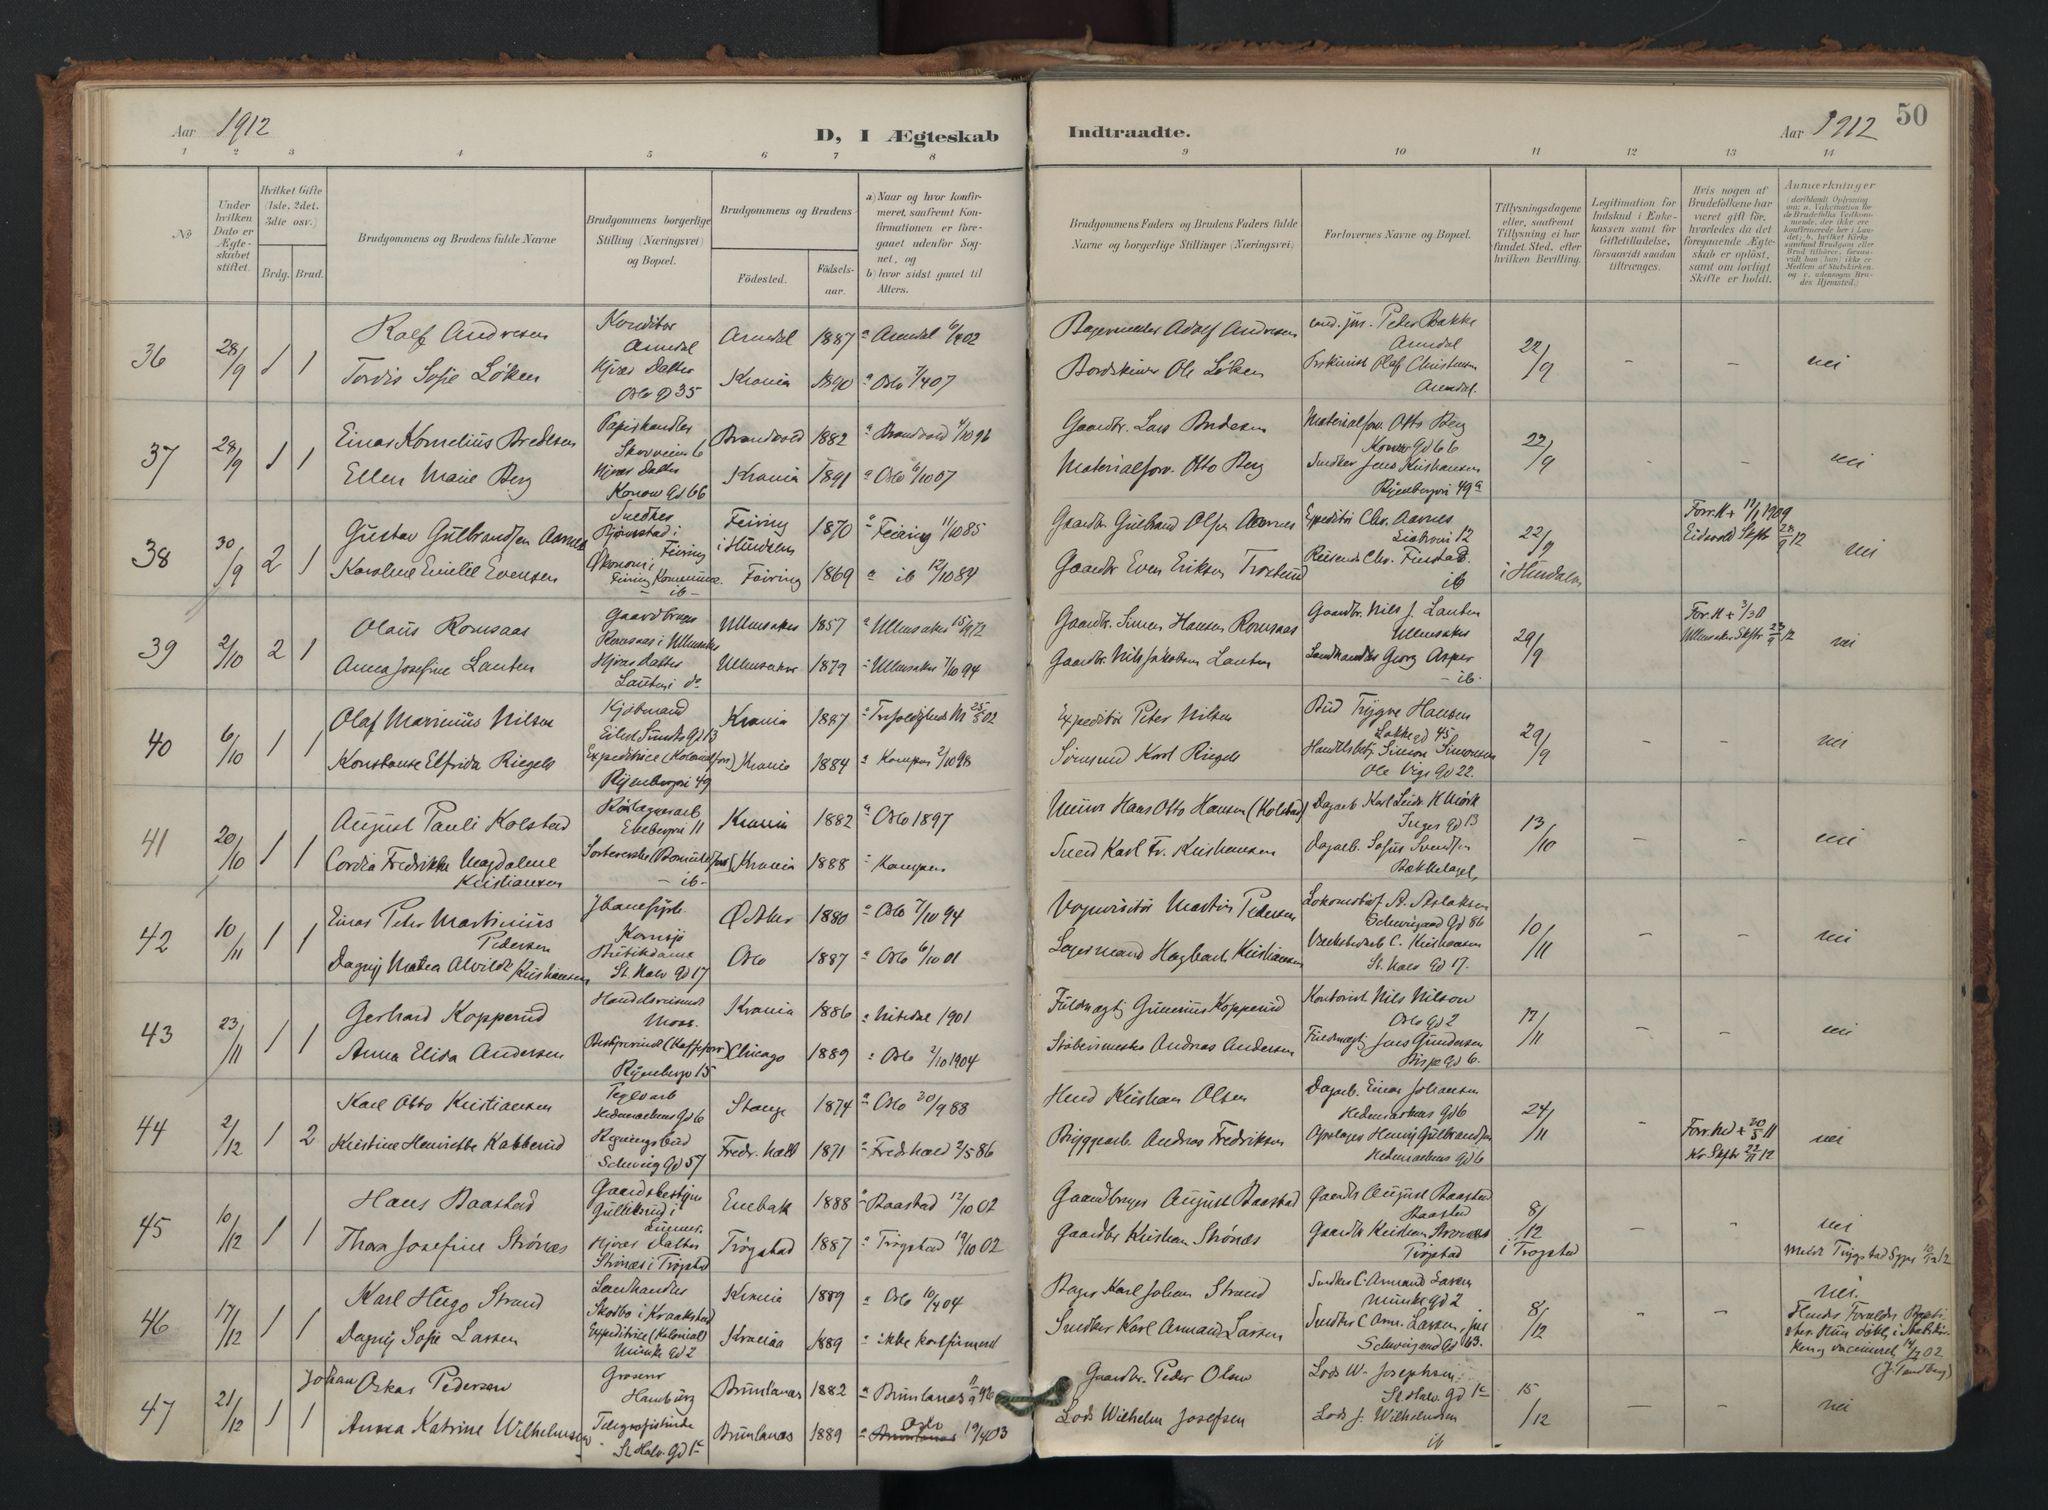 Aar 1912
D, I Ægteskab
Indtraadte.
Aar 1912
50
1 2 3 4 5 6 7 8
9 10 11 12 13 14
No
Under hvilken Dato er Ægteskabet stiftet.
Hvilket Gifte (1ste, 2det, 3die osv.)
Brdg. Brud.
Brudgommens og Brudens fulde Navne
Brudgommens borgerlige Stilling (Næringsvei) og Bopæl.
Brudgommens og Brudens
Fødested.
Fødselsaar.
a) Naar og hvor konfirmeret, saafremt Konfirmationen er foregaaet udenfor Sognet, og
b) hvor sidst gaaet til Alters.
Brudgommens Faders og Brudens Faders fulde Navne og borgerlige Stillinger (Næringsvei)
Forlovernes Navne og Bopæl.
Tillysningsdagene eller, saafremt Tillysning ei har fundet Sted, efter hvilken Bevilling.
Legitimation for Indskud i Enkekassen samt for Giftetilladelse, forsaavidt saadan tiltrænges.
Hvis nogen af Brudefolkene har været gift før, hvorledes da det foregaaende Ægteskab er opløst, samt om lovligt Skifte er holdt.
Anmærkninger
36 28/9 1 1
Rolf Andresen
Konditor Arendal
Arendal 1887 a Arendal 6/4 02
Tordis Sofie Løken
Hjves Datter Oslo Gd 35
Krania 1890 a Oslo 7/4 07
Bagermester Adolf Andresen
cand. jur. Peter Bakke Arendal
Olaf Christensen Arendal
22/9 - - nei
37 28/9 1 1
Einar Kornelius Bredesen
Papirhandler
Brandvold 1882 a Brandvold 4/10 96
Ellen Marie Berg
Hjves Datter Konow Gd 66
Krania 1891 a Oslo 6/10 07
Gaardbr. Lars Bredesen
Materialforv. Otto Berg Konow Gd 66
Materialforv. Otto Berg
Snedker Jens Kristiansen Ryenbergvei 49a
22/9 - - nei
38 30/9 2 1
Gustav Gulbrandsen Aarnes
Snedker
Feiring i Hurdalen 1870 a Feiring 11/10 85
Karoline Emilie Evensen
Feiring Kommune - ib -
Feiring 1869 a ib 12/10 84
Gaardbr Gulbrand Olsen Aarnes
Expeditør Chr. Aarnes
Gaardbr Even Eriksen
Reisende Chr. Finstad ib
22/9 i Hurdalen
Eidsvold Skftr 28/9 12
nei
39 2/10 2 1
Olaus Romsaas
Gaardbruger Romsaas i Ullensaker
Ullensaker 1857 a Ullensaker 15/9 72
Anna Josefine Lauten
Hjves datter Lauten i do
Ullensaker 1879 a Ullensaker 7/10 94
Gaardbr. Simen Hansen Romsaas
Gaardbr. Nils J. Lauten Ullensaker
Gaardbr. Nils Jakobsen Lauten
Landhandler Georg Asper - ib -
29/9
nei
40 6/10 1 1
Olaf Marinius Nilsen
Kjøbmand Eilert Sundts Gd 13
Krania 1887 a Trefoldigheds M 25/5 02
Konstanse Elfrida Riegels
Expeditrice (Kolonialforr) Ryenbergvei 49
Krania 1884 a Kampen 2/10 98
Expeditør Peter Nilsen
Bud Trygve Hansen Løkkegd 45
Sømand Karl Riegels
Handelsbetj Simon Simonsen Ole Vigs Gd 22.
29/9 - - nei
41 20/10 1 1
August Pauli Kolstad
Rørlæggerarb Ekebergvei 11
Krania 1882 a Oslo 1897
Cordia Fredrikke Magdalene Kristiansen
- ib -
Krania 1888 - Kampen
Murer Hans Otto Hansen (Kolstad)
Inges Gd 13
Karl Fr. Kristiansen
Dagarb. Sofus Svendsen Bækkelaget
13/10 - - nei
42 10/11 1 1
Einar Peter Martinius Pedersen
Kornsjø
1880 a Oslo 7/10 94
Dagny Matea Alvilde Kristiansen
Butikdame St. Halv. Gd 17
Oslo 1887 a Oslo 6/10 01
Vognvisitør Martin Pedersen
Lokomotivf A. Aslaksen Schweigaard Gd 86
Lagermand Hagbart Kristiansen
Værkstedarb C. Kristiansen St. Halv Gd 17.
10/11 - - nei
43 23/11 1 1
Gerhard Kopperud
Handelsreisende Moss.
Krania 1886 a Nitedal 1901
Anna Elida Andersen
Bestyrerinde (Kaffeforr) Ryenbergv 15
Chicago 1889 a Oslo 2/10 1904
Fuldmægtig Gunerius Kopperud
Kontorist Nils Nilson Oslo Gd 2
Støbemester Andreas Andersen
Fuldmægtig Jens Gundersen Bispe Gd 6.
17/11 - - nei
44 2/12 1 2
Karl Otto Kristiansen
Teglvarb Hedemarkens Gd 6
Stange 1874 a Oslo 30/9 88
Kristine Henriette Kabberud
Rigningsbud Schweig Gd 57
Fredr.hald 1871 a Fredrhald 2/5 86
Kristian Olsen
Dagarb. Einar Johansen Hedemarkens Gd 6
Bryggearb. Andreas Fredriksen
Henry Gulbrandsen Hedemarkens Gd 6
24/11 -
Forr. Md + 20/5 11
Kr Skftr 22/11 12
nei
45 10/12 1 1
Hans Baastad
Gaardsbestyrer Gullerud i
Enebak 1888 a Baastad 12/10 02
Thora Josefine Strønæs
Hjves datter Strønæs i Trøgstad
Trøgstad 1887 a Trøgstad 19/10 02
Gaardbruger August Baastad
Gaardbr August Baastad Baastad
Gaardbr Kristian Strønæs
Gaardbr Kristian Strønæs Trøgstad
8/12 i Trøgstad - -
nei
46 17/12 1 1
Karl Hugo Strand
Landhandler Skodbo i Kraakstad
Krania 1889 a Oslo 10/4 04
Dagny Sofie Larsen
Expeditrice (Kolonial) Munke Gd 2
Krania 1889 - ikke konfirmeret
Bager Karl Johan Strand
Snedker C. Armand Larsen Munke Gd 2
Snedker Karl Armand Larsen
Snedker C. Arm. Larsen, jur Schweigaard Gd 63.
8/12 - -
nei.
(J. Tandberg)
47 21/12 1 1
Johan Oskar Pedersen
Hamburg
Brunlanæs 1882 a Brunlanæs 11/9 96
Anna Katrine Wilhelmsen
Telegrafistinde St Halv. Gd 1c
Brunlanæs 1889 a Oslo 19/4 03
Gaardbr. Peder Olsen
Lods W. Josephsen St Halv. Gd 1c
Lods Wilhelm Josefsen
Lods J. Wilhelmsen ib
15/12 - - nei